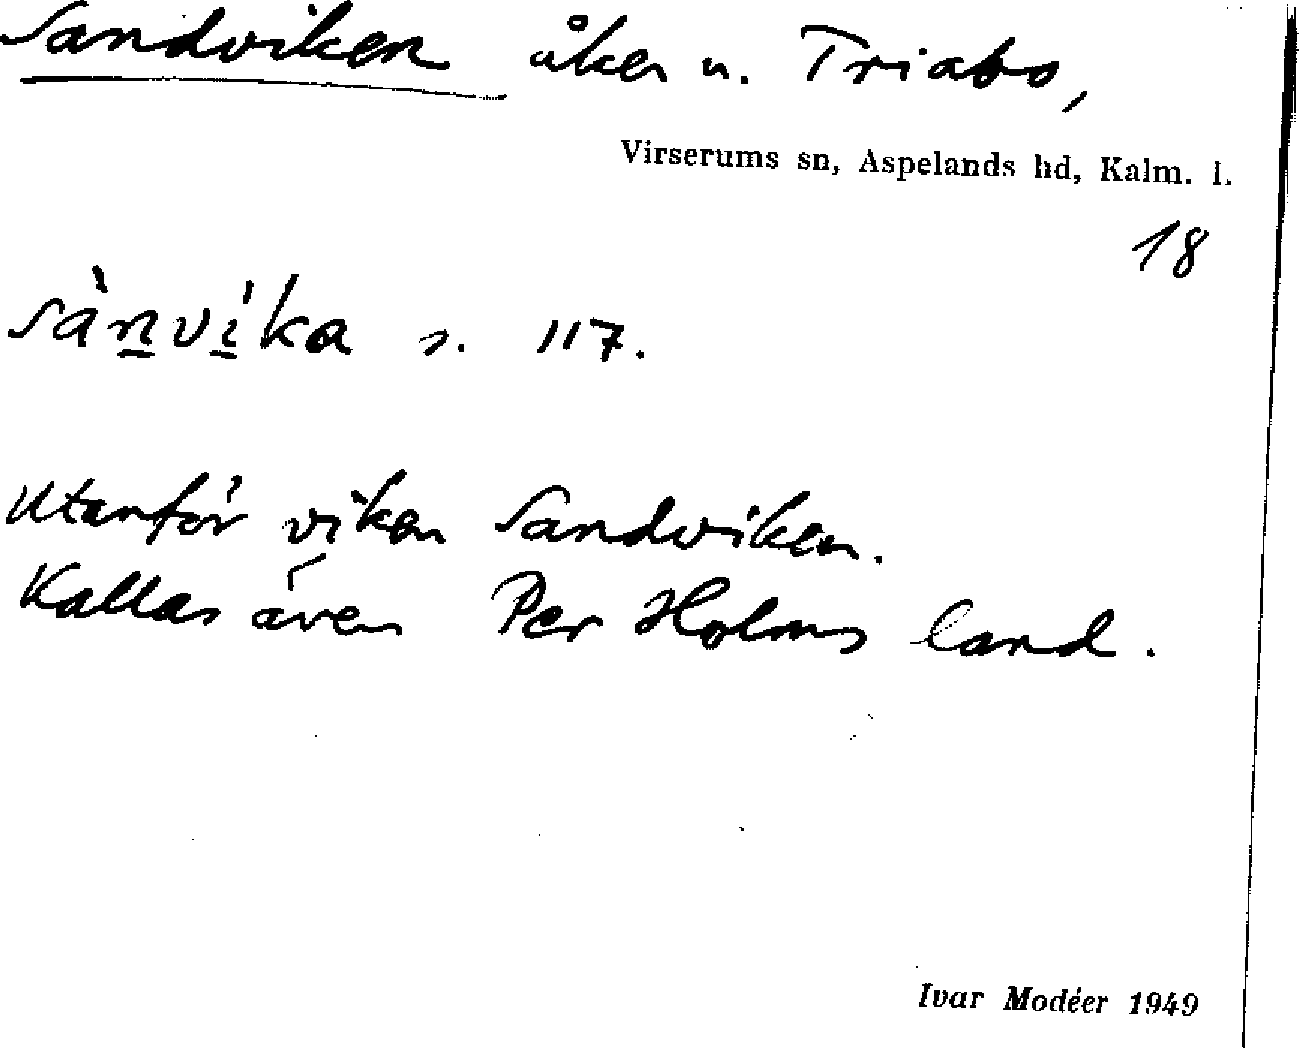 Sandviken åker u. Triabo,
Virserums sn, Aspelands hd, Kalm. l.
18
sàn̲ví̲ka s. 117.
Utanför viken Sandviken.
Kallas även Per Holms land.
Ivar Modéer 1949